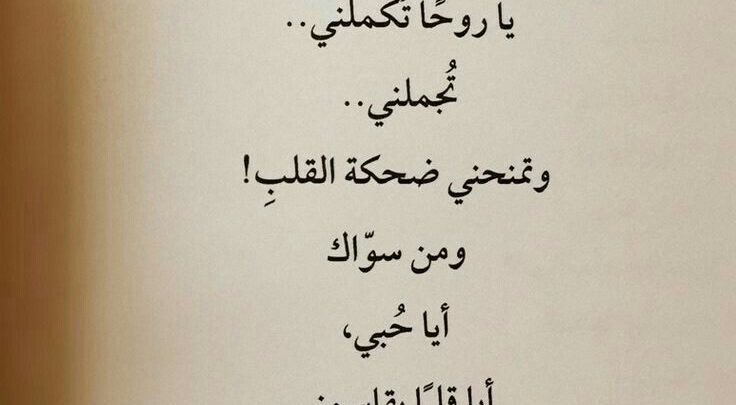 يا روحًا تكملني..
تُجملني..
وتمنحني ضحكة القلبِ!
ومن سوّاك
أيا حُبي،
أيا قلبًا يقاسمني